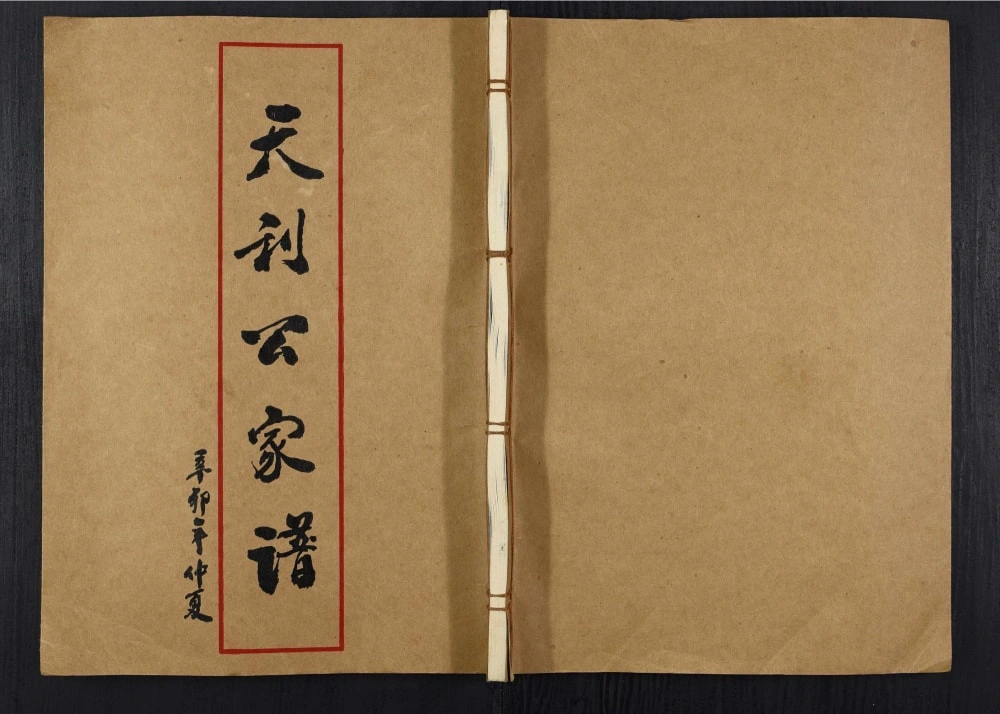 天利公家譜
辛卯年仲夏